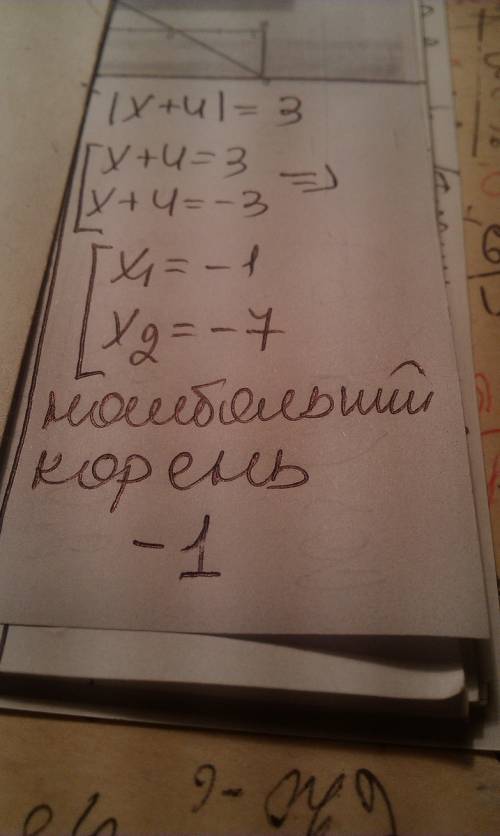 |x+4|=3
[x+4=3
[x+4=-3 =>
[x1=-1
[x2=-7
наибольший
корень
-1